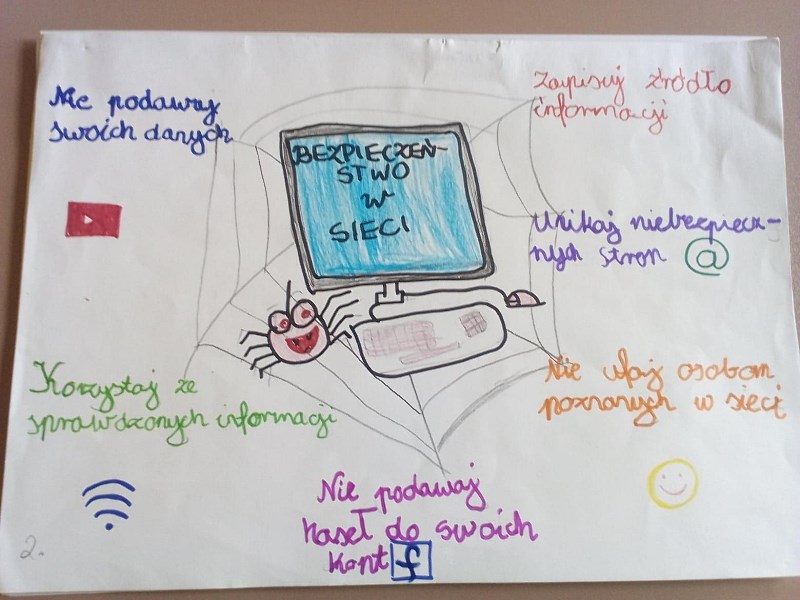 Nie podawaj
swoich danych
Zapisuj źródło
informacji
BEZPIECZEŃ-
STWO
W
SIECI
Unikaj niebezpiecz-
nych stron @
Korzystaj ze
sprawdzonych informacji
Nie ufaj osobom
poznanych w sieci
Nie podawaj
haseł do swoich
kont f
2.